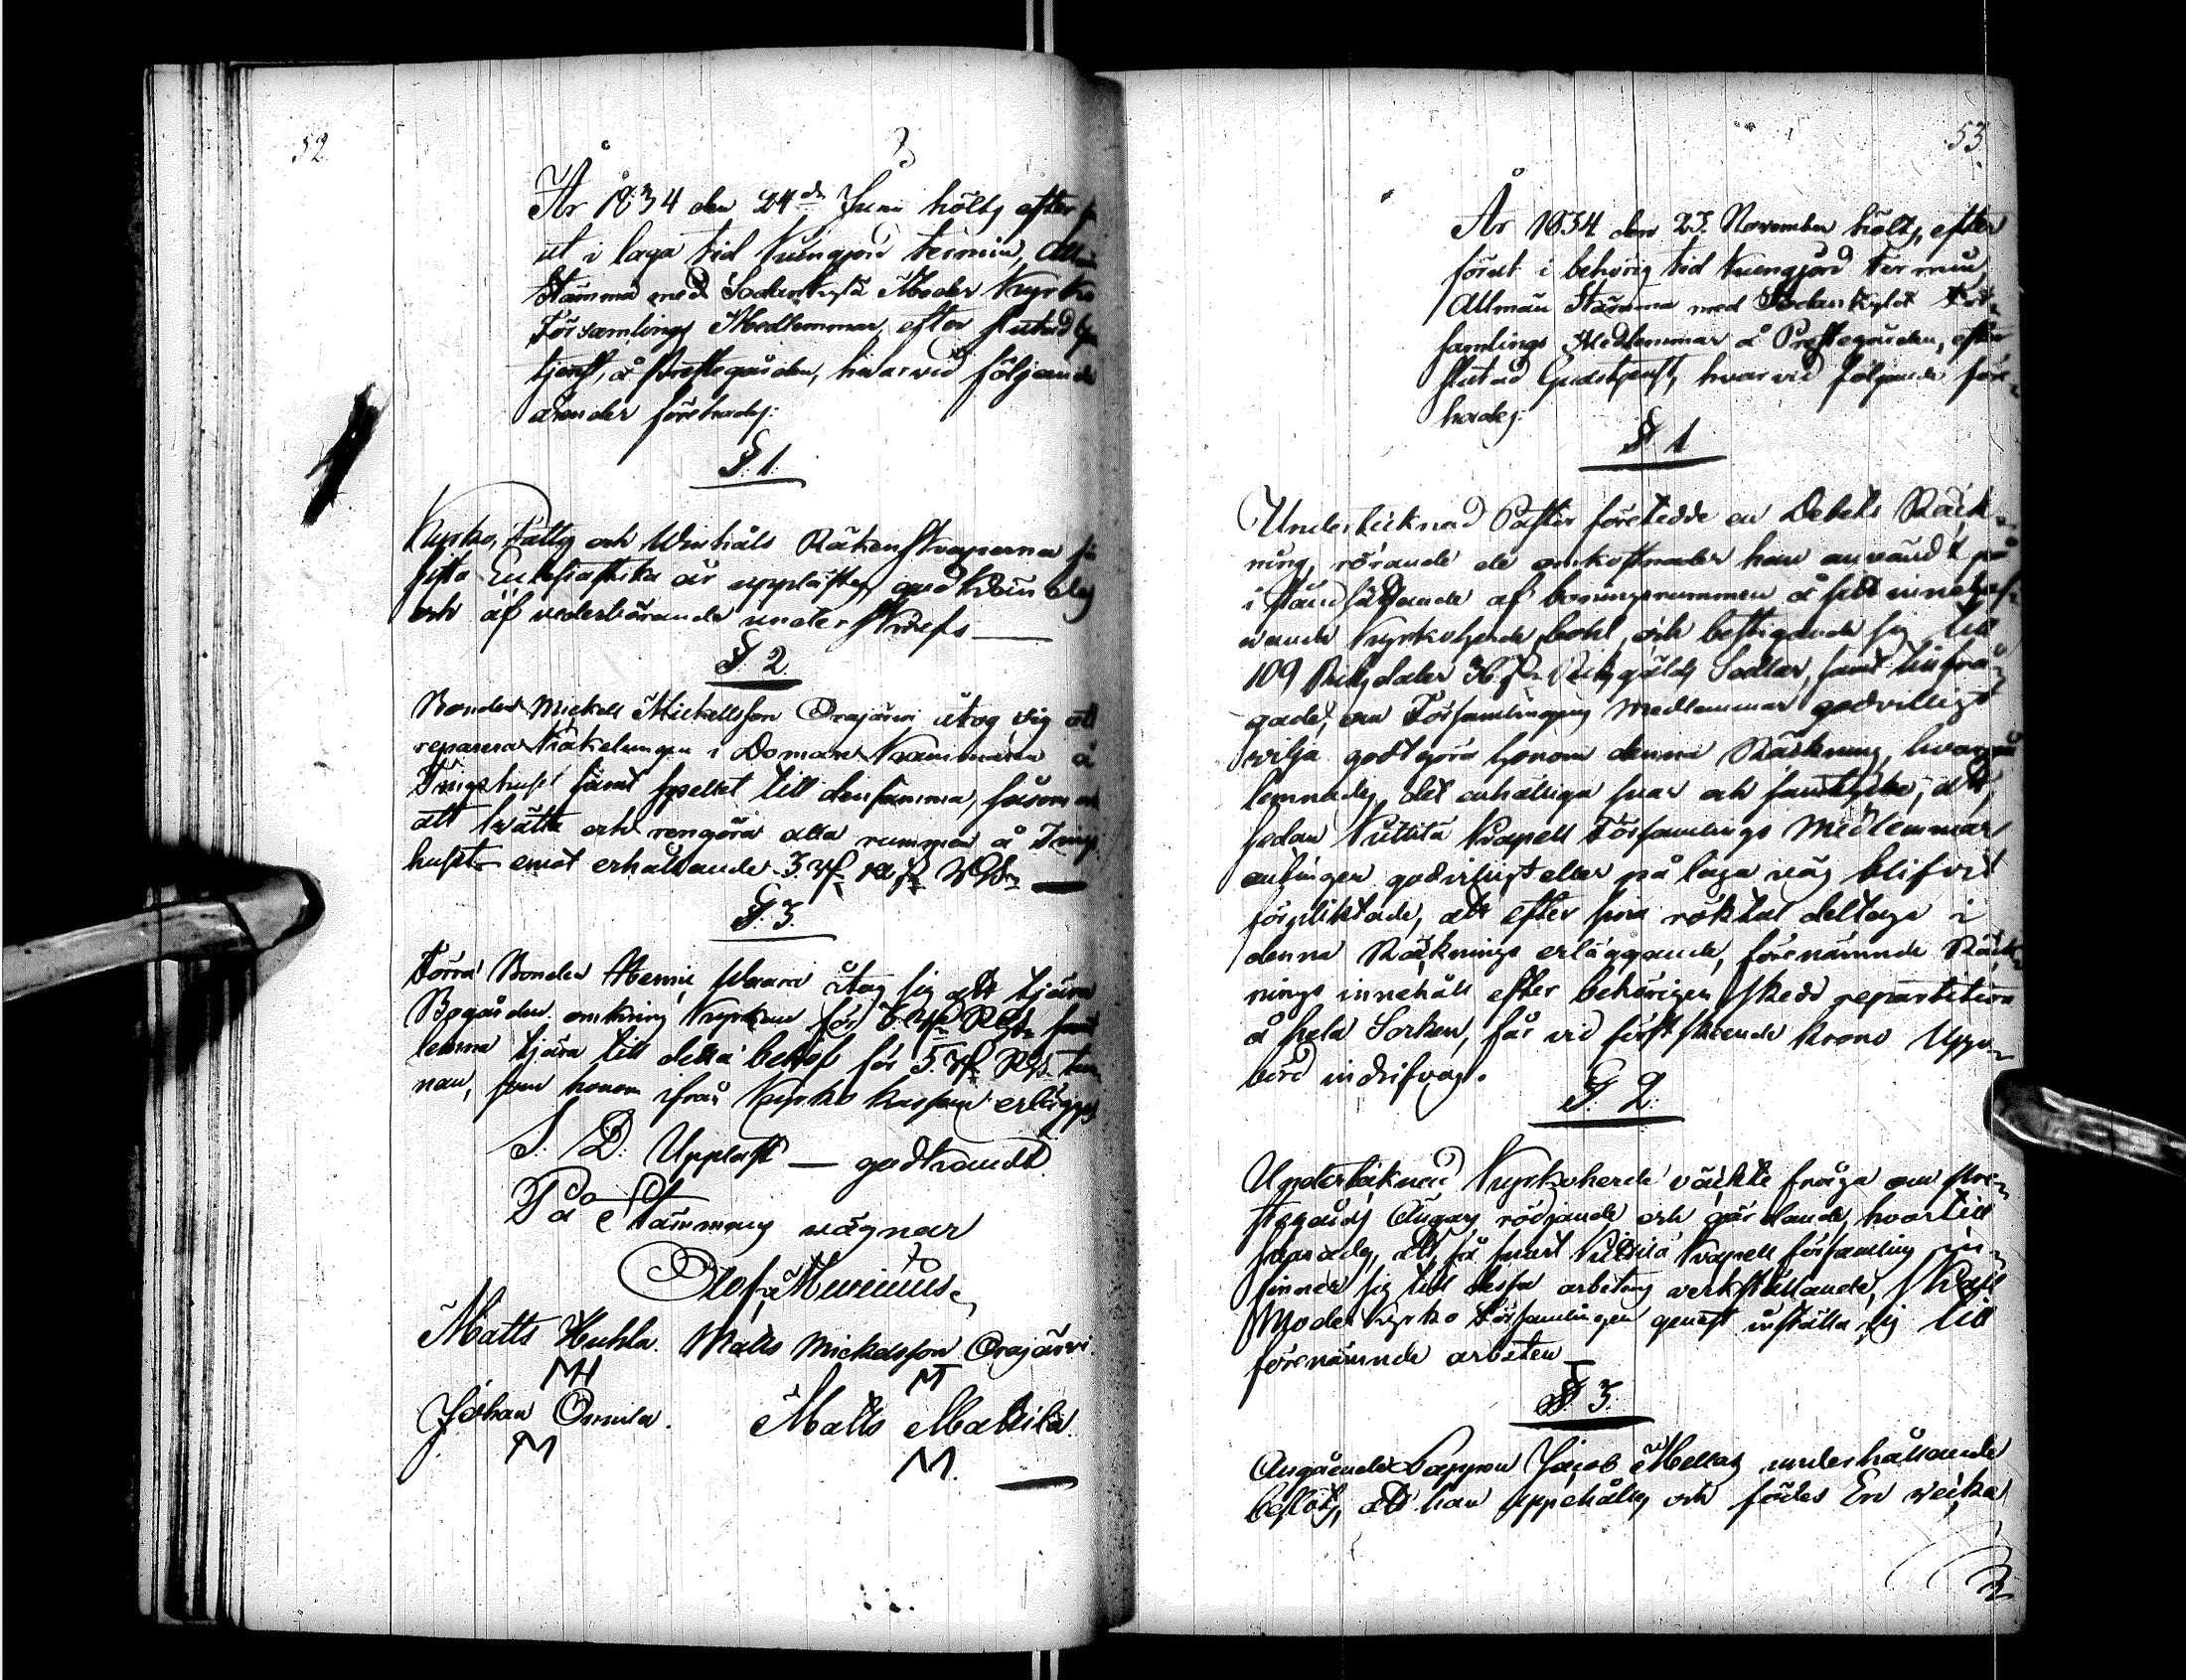 52
År 1834 den 24de Juni hölts efter
ut i laga tid kungjord termin, Allmän
Stämma med Sodankylä Moder Kyrko
Församlings Medlemmar, efter slutad
tjenst, å Prestegården, hvarvid följande
ärender förehades:
§. 1.
Kyrko, Fattig och Winhåls Räkenskaperna
sista Ecklesiastika år upplästes, godkändes
och af vederbörande underskrefs
§ 2.
Bonden Mickel Mickellsson Orajärvi åtog sig att
reparera Kakelungen i Domare Kammaren å
Tingshuset samt spellet till densamma, såsom
att tvätta och rengöra alla rummen å Tings
huset emot erhållande 3.
§. 3.
Förra Bonden Henric åtog sig att tjära
Bogården omkring Kyrkan för
lemna tjära till detta behof för 5. tun
nan, som honom ifrån Kyrko kassan erlägges
S. D. Uppläst — godkändt
På Stämmans vägnar
Matts Huhla. Matts Mickelsson Orajärvi.
MH M
Johan Matts
M M.
53
År 1834 den 23. November hölts, efter
förut i behörig tid kungjord termin,
Allmän Stämma med Sodankylä För-
samlings Medlemmar å Prestegården, efter
slutad Gudstjenst, hvarvid följande före-
hades:
§ 1
Undertecknad Pastor företedde en Debets Räk-
ning, rörande de omkostnader han användt på
i stånd sättande af boningsrummen å sitt innehaf-
wande Kyrkoherde bohl, och bestigande sig till
109 Riksdaler Riksgälds Sedlar, samt tillfrå-
gade, om Församlingens Medlemmar godvilligt
vilja godtgöra honom denna Räkning, hvarpå
lemnades det enhälliga svar och samtycke, att,
sedan Kittilä Kapell Församlings Medlemmar
antingen godvilligt eller på laga väg blifvit
förpliktade, att efter sina röktal deltaga i
denna Räknings erläggande, förenämnde Räk-
nings innehåll efter behörigen skedd repartition
å hela Sorken, får vid först skeende krono Uppe-
börd indrifvas.
§. 2.
Undertecknad Kyrkoherde väckte fråga om Pre-
stegårds Ängars rödjande och gärdande, hvartill
svarades, att, så snart Kittilä Kapell församling in-
finner sig till dessa arbetens verkställande, skall
Moderkyrko Församlingen genast inställa sig till
förenämnde arbeten
§ 3.
Angående Lappen Jacob underhållande
beslöts, att han uppehålles och födes En vecka